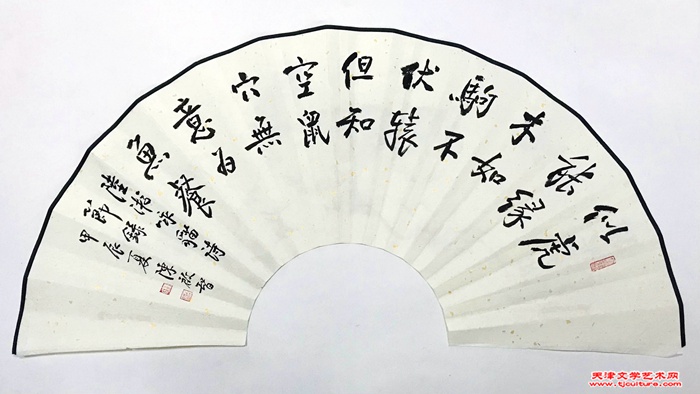 似虎
能缘
木如
駒不
伏轅
但知
空鼠
穴無
意为
魚餐
陸游咏貓詩
節録
甲辰夏陳啟智
天津文学艺术网
www.tjculture.com